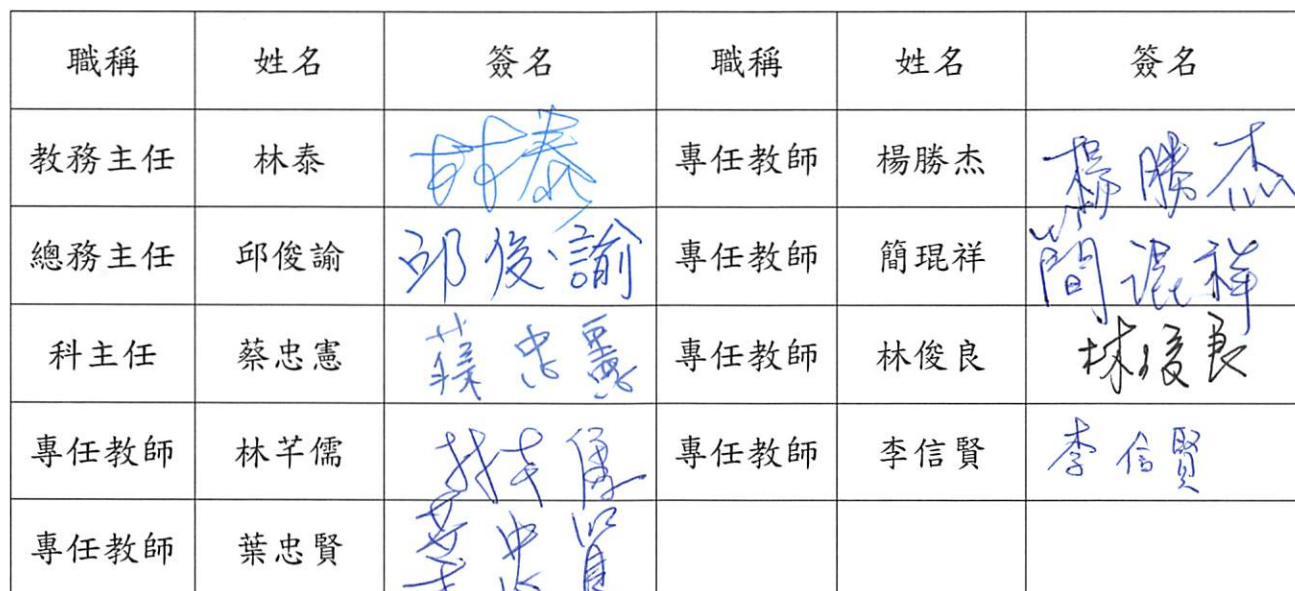 職稱 姓名 簽名 職稱 姓名 簽名
教務主任 林泰 林泰 專任教師 楊勝杰 楊勝杰
總務主任 邱俊諭 邱俊諭 專任教師 簡琨祥 簡琨祥
科主任 蔡忠憲 蔡忠憲 專任教師 林俊良 林俊良
專任教師 林芊儒 林芊儒 專任教師 李信賢 李信賢
專任教師 葉忠賢 葉忠賢